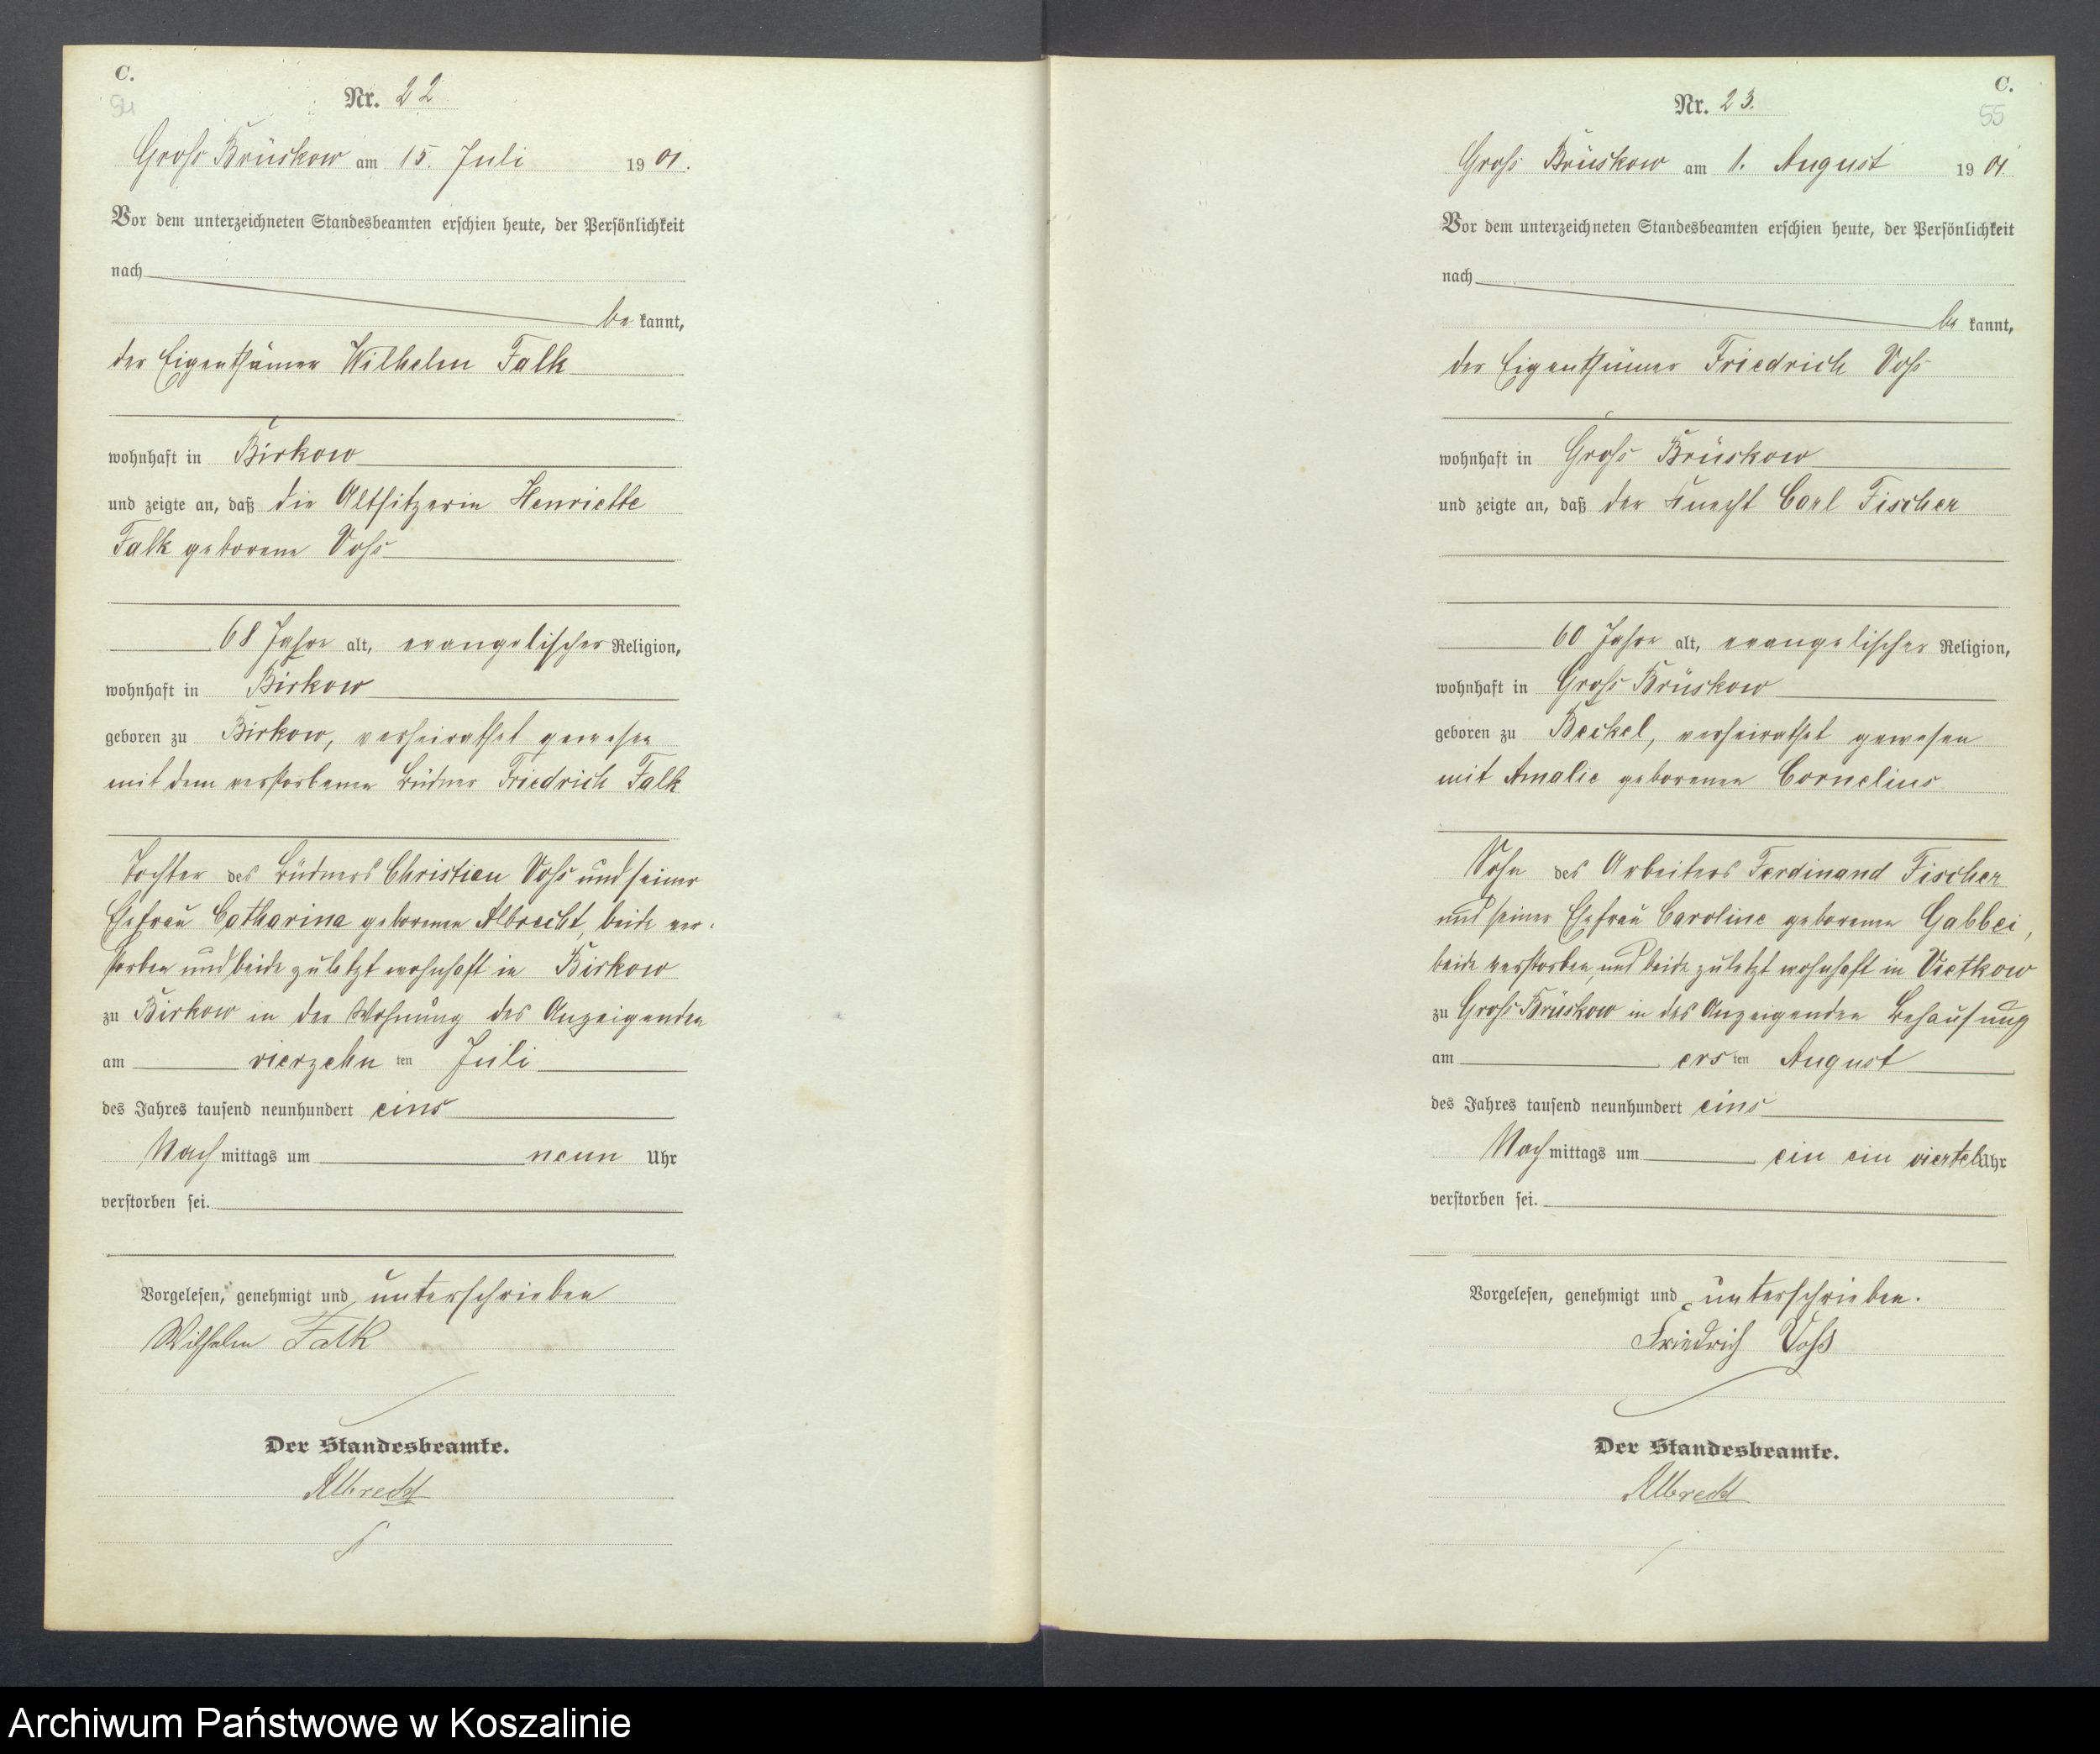 C.
54
Nr. 22
Groß Brüskow am 15. Juli 1901.
Vor dem unterzeichneten Standesbeamten erschien heute, der Persönlichkeit
nach
be kannt,
der Eigenthümer Wilhelm Falk
wohnhaft in Birkow
und zeigte an, daß die Altsitzerin Henriette
Falk geborene Voß
68 Jahre alt, evangelischer Religion,
wohnhaft in Birkow
geboren zu Birkow, verheirathet gewesen
mit dem verstorbenen Büdner Friedrich Falk
Tochter des Büdners Christian Voß und seiner
Ehefrau Catharina geborenen Albrecht, beide ver-
storben und beide zuletzt wohnhaft in Birkow
zu Birkow in der Wohnung des Anzeigenden
am vierzehn ten Juli
des Jahres tausend neunhundert eins
Nach mittags um neun Uhr
verstorben sei.
Vorgelesen, genehmigt und unterschrieben
Wilhelm Falk
Der Standesbeamte.
Albrecht
C.
55
Nr. 23.
Groß Brüskow am 1. August 1901
Vor dem unterzeichneten Standesbeamten erschien heute, der Persönlichkeit
nach
be kannt,
der Eigenthümer Friedrich Voß
wohnhaft in Groß Brüskow
und zeigte an, daß der Knecht Carl Fischer
60 Jahre alt, evangelischer Religion,
wohnhaft in Groß Brüskow
geboren zu Beckel, verheirathet gewesen
mit Amalie geborenen Cornelius
Sohn des Arbeiters Ferdinand Fischer
und seiner Ehefrau Caroline geborenen Gabbei,
beide verstorben und beide zuletzt wohnhaft in Vietkow
zu Groß Brüskow in des Anzeigenden Behausung
am ers ten August
des Jahres tausend neunhundert eins
Nach mittags um ein ein viertel Uhr
verstorben sei.
Vorgelesen, genehmigt und unterschrieben.
Friedrich Voß
Der Standesbeamte.
Albrecht
Archiwum Państwowe w Koszalinie